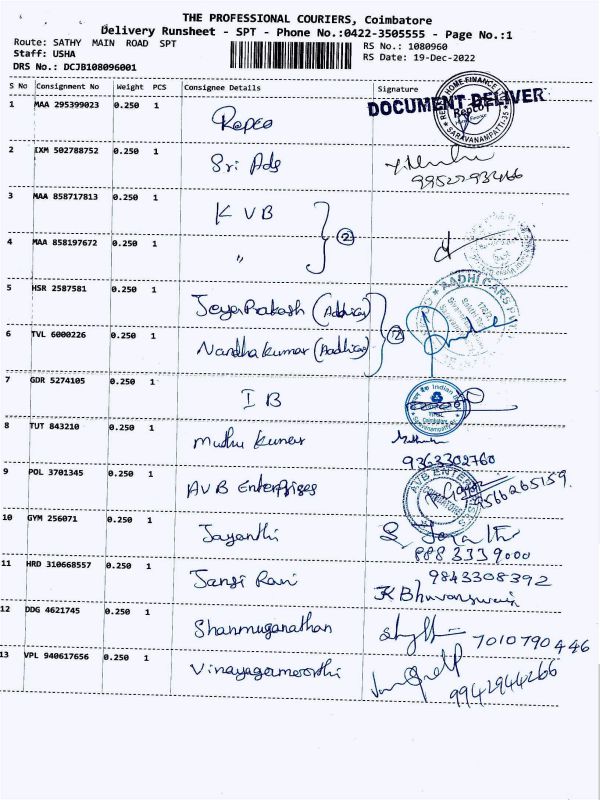 THE PROFESSIONAL COURIERS, Coimbatore
Delivery Runsheet - SPT - Phone No.:0422-3505555 - Page No.:1
Route: SATHY MAIN ROAD SPT
RS No.: 1080960
Staff: USHA
RS Date: 19-Dec-2022
DRS No.: DCJB108096001
S No Consignment No Weight PCS Consignee Details Signature
1 MAA 295399023 0.250 1 Repco
DOCUMENT DELIVER
REPCO HOME FINANCE
SARAVANAMPATTI-35
2 IXM 502788752 0.250 1 Sri Ads
3 MAA 858717813 0.250 1 KVB
2
4 MAA 858197672 0.250 1 "
5 HSR 2587581 0.250 1 JeyaPrakash (Aadhicas)
AADHI CARS
6 TVL 6000226 0.250 1 Nandhakumar (Aadhicas)
2
7 GDR 5274105 0.250 1 IB
Indian
8 TUT 843210 0.250 1 Muthu kumar
9363302760
9 POL 3701345 0.250 1 AVB Enterprises
AVB ENTERPRISES
9566265159.
10 GYM 256071 0.250 1 Jayanthi
8883339000
11 HRD 310668557 0.250 1 Jansi Rani 9843308392
12 DDG 4621745 0.250 1 Shanmuganathan 7010790446
13 VPL 940617656 0.250 1 Vinayagamoorthi
9942944266